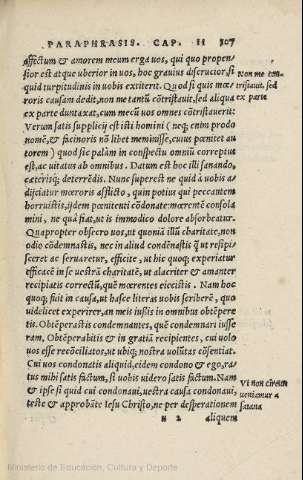 PARAPHRASIS. CAP. II 307
affectum & amorem meum erga uos, qui quo propen-
sior est atque uberior in uos, hoc grauius discrucior, si
quid turpitudinis in uobis extiterit. Quod si quis mœ-
roris causam dedit, non me tantũ cõtristauit, sed aliqua
ex parte duntaxat, cum mecũ uos omnes cõtristauerit:
Non me con-
tristauit, sed
ex parte
Verum satis supplicij est isti homini (neq; enim prodo
nomẽ, & facinoris nõ libet meminisse, cuius pœnitet au
torem) quod sic palàm in conspectu omniũ correptus
est, ac uitatus ab omnibus. Datum est hoc illi sanando,
cæterisq; deterrẽdis. Nunc superest ne quid à uobis a-
dijciatur mœroris afflicto, quin potius qui peccantem
horruistis, ijdem pœniteuti cõdonate: mœrentẽ consola
mini, ne quã fiat, ut is immodico dolore absorbeatur.
Quapropter obsecro uos, ut quoniã illũ charitate, non
odio cõdemnastis, nec in aliud condẽnastis q̃ ut resipi-
sceret ac seruaretur, efficite, ut hic quoq; experiatur
efficacẽ in se uestrã charitatẽ, ut alacriter & amanter
recipiatis correctũ, quẽ mœrentes eiecistis. Nam hoc
quoq; fuit in causa, ut hasce literas uobis scriberẽ, quo
uidelicet experirer, an meis iussis in omnibus obtẽpere
tis. Obtẽperastis condemnantes, quẽ condemnari iusse
ram, Obtẽperabitis & in gratiã recipientes, cui uolo
uos esse recõciliatos, ut ubiq; nostra uolũtas cõsentiat.
Cui uos condonatis aliquid, eidem condono & ego, ra-
tus mihi satis factum, si uobis uidero satis factum. Nam
& ipse si quid cui condonaui, uestra causa condonaui,
teste & approbãte Iesu Christo, ne per desperationem
Vt non circum
ueniamur à
satana
N 2 aliquem
Ministerio de Educación, Cultura y Deporte